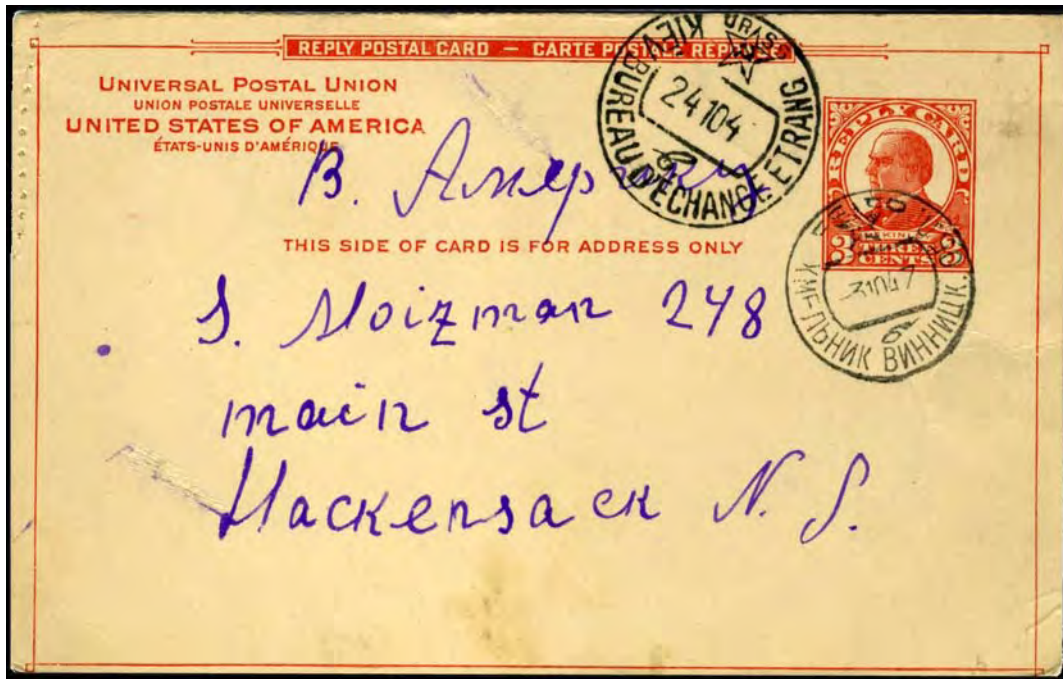 REPLY POSTAL CARD – CARTE POSTALE RÉPONSE
UNIVERSAL POSTAL UNION
UNION POSTALE UNIVERSELLE
UNITED STATES OF AMERICA
ÉTATS-UNIS D'AMÉRIQUE
KIEV BUREAU D'ECHANGE ETRANG
24 10 4
REPLY CARD
3 THREE 3
CENTS
ХМЕЛЬНИК ВИННИЦК.
б
В. Америку
THIS SIDE OF CARD IS FOR ADDRESS ONLY
S. Moizman 248
main st
Hackensack N. J.